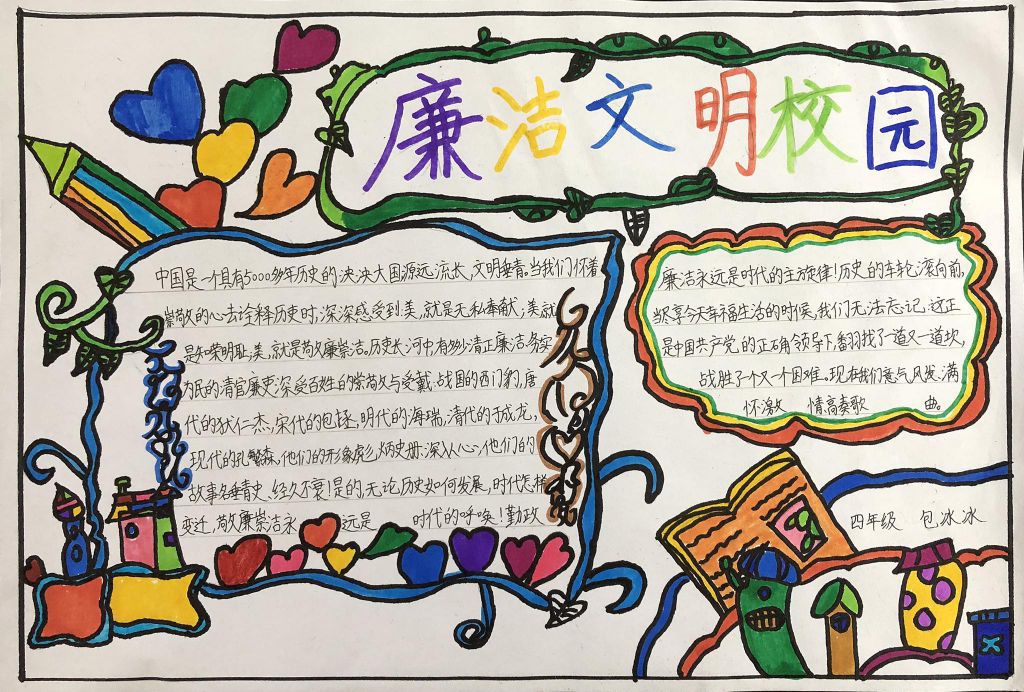 廉洁文明校园
中国是一个具有5000多年历史的泱泱大国源远流长,文明垂青。当我们怀着
崇敬的心去诠释历史时,深深感受到美,就是无私奉献,美就
是知荣明耻,美,就是敬廉崇洁。历史长河中,有多少清正廉洁务实
为民的清官廉吏深受百姓的崇敬与爱戴。战国的西门豹,唐
代的狄仁杰,宋代的包拯,明代的海瑞,清代的于成龙,
现代的孔繁森。他们的形象彪炳史册,深入人心,他们的
故事名垂青史、经久不衰!是的,无论历史如何发展,时代怎样
变迁,敬廉崇洁永远是时代的呼唤!勤政
廉洁永远是时代的主旋律!历史的车轮滚滚向前,
当享今天幸福生活的时候,我们无法忘记,这正
是中国共产党的正确领导下,翻找了一道又一道坎,
战胜了个又一个困难。现在我们意气风发,满
怀激情高奏歌曲。
四年级 包冰冰